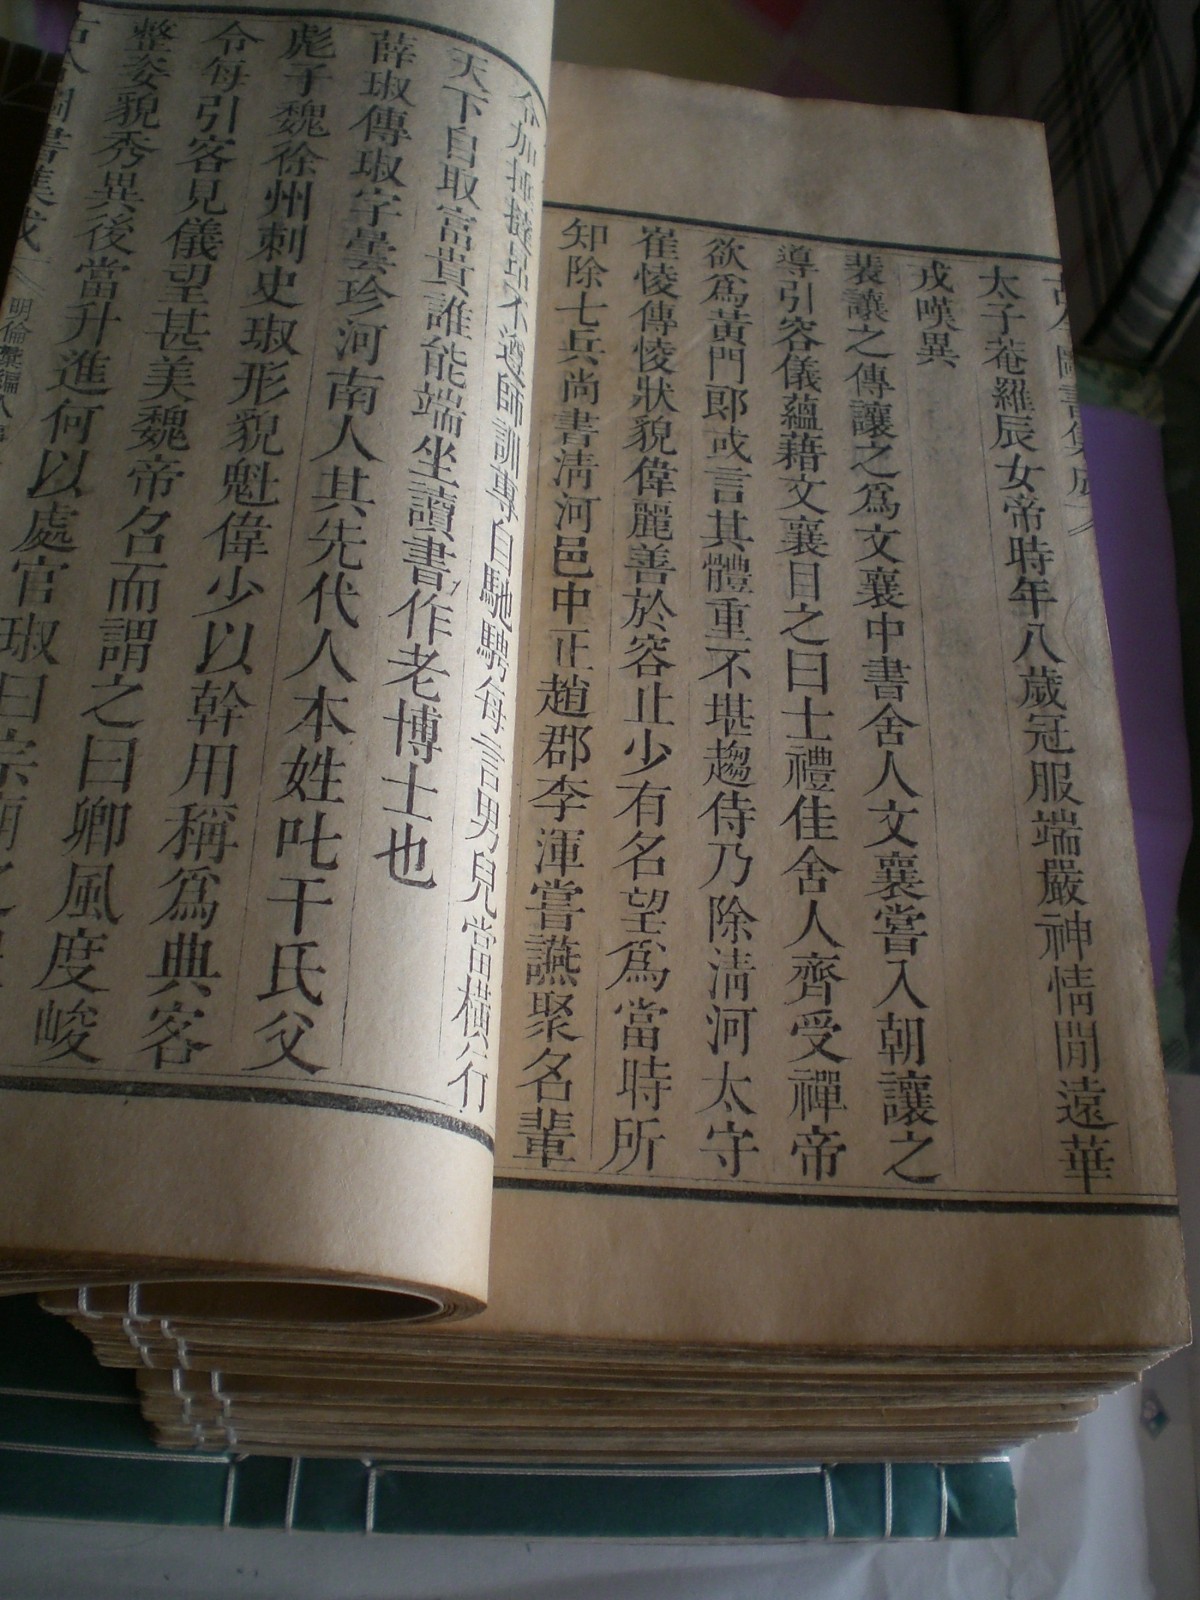 太子菴羅辰女帝時年八歲冠服端嚴神情閒遠華
戎嘆異
裴讓之傳讓之爲文襄中書舍人文襄嘗入朝讓之
導引容儀蘊藉文襄目之曰士禮佳舍人齊受禪帝
欲爲黃門郎或言其體重不堪趨侍乃除淸河太守
崔㥄傳㥄狀貌偉麗善於容止少有名望爲當時所
知除七兵尚書淸河邑中正趙郡李渾嘗讌聚名輩
加捶撻昂不遵師訓專自馳騁每言男兒當橫行
天下自取富貴誰能端坐讀書作老博士也
薛琡傳琡字曇珍河南人其先代人本姓叱干氏父
彪子魏徐州刺史琡形貌魁偉少以幹用稱爲典客
令每引客見儀望甚美魏帝召而謂之曰卿風度峻
整姿貌秀異後當升進何以處官琡曰宗廟之
圖書集成
明倫彙編人事